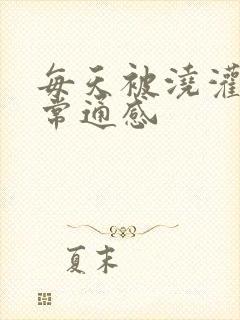 每天被浇灌
常通感
夏末